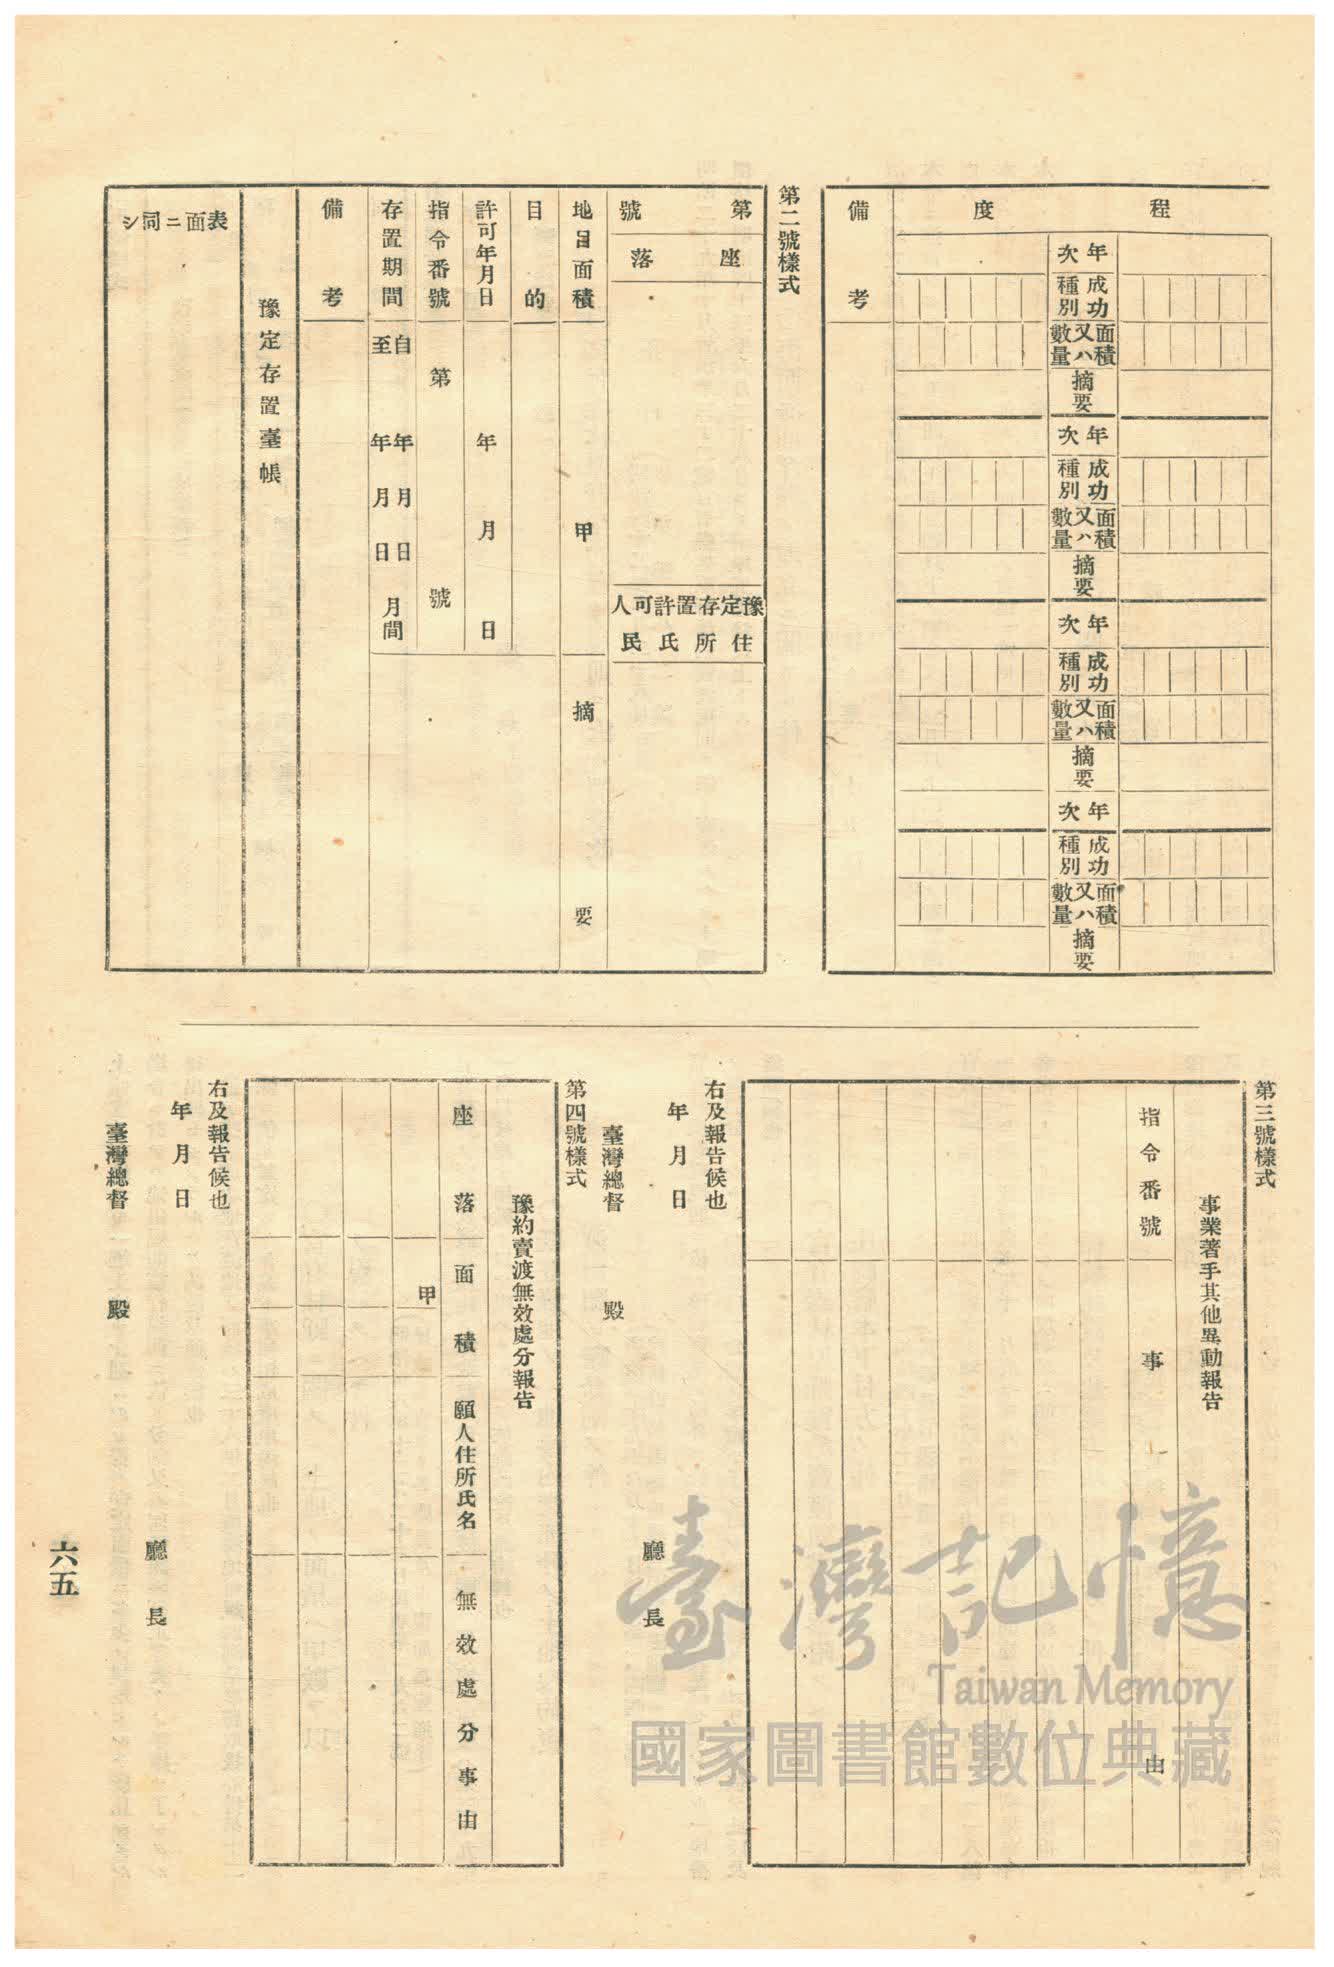 程度
年次
成功種別
面積又ハ數量
摘要
年次
成功種別
面積又ハ數量
摘要
年次
成功種別
面積又ハ數量
摘要
年次
成功種別
面積又ハ數量
摘要
備考
第二號樣式
第號
座落
豫定存置許可人
住所氏民
地目面積
甲
摘要
目的
許可年月日
年月日
指令番號
第號
存置期間
自年月日
至年月日
月間
備考
豫定存置臺帳
表面ニ同シ
第三號樣式
事業著手其他異動報告
指令番號
事由
右及報告候也
年月日
廳長
臺灣總督殿
第四號樣式
豫約賣渡無效處分報告
座落
面積
願人住所氏名
無效處分事由
甲
右及報告候也
年月日
廳長
臺灣總督殿
六五
臺灣記憶
Taiwan Memory
國家圖書館數位典藏